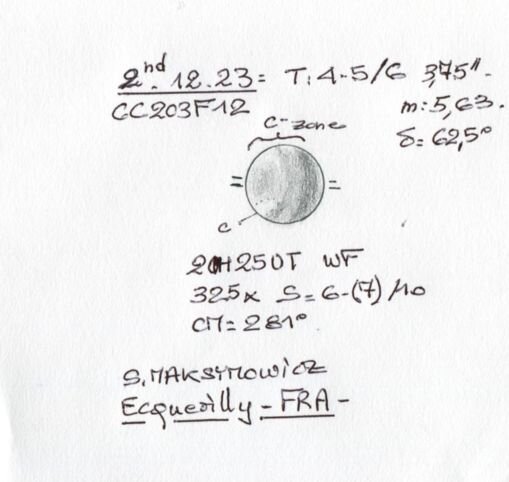 2nd.12.23= T: 4-5/6 3,75".
CC203F12 m: 5,63.
c-zone δ= 62,5°
= =
c
20H250T WF
325x S= 6-(7)/10
CM= 281°
S. MAKSYMOWICZ
Ecquevilly - FRA -